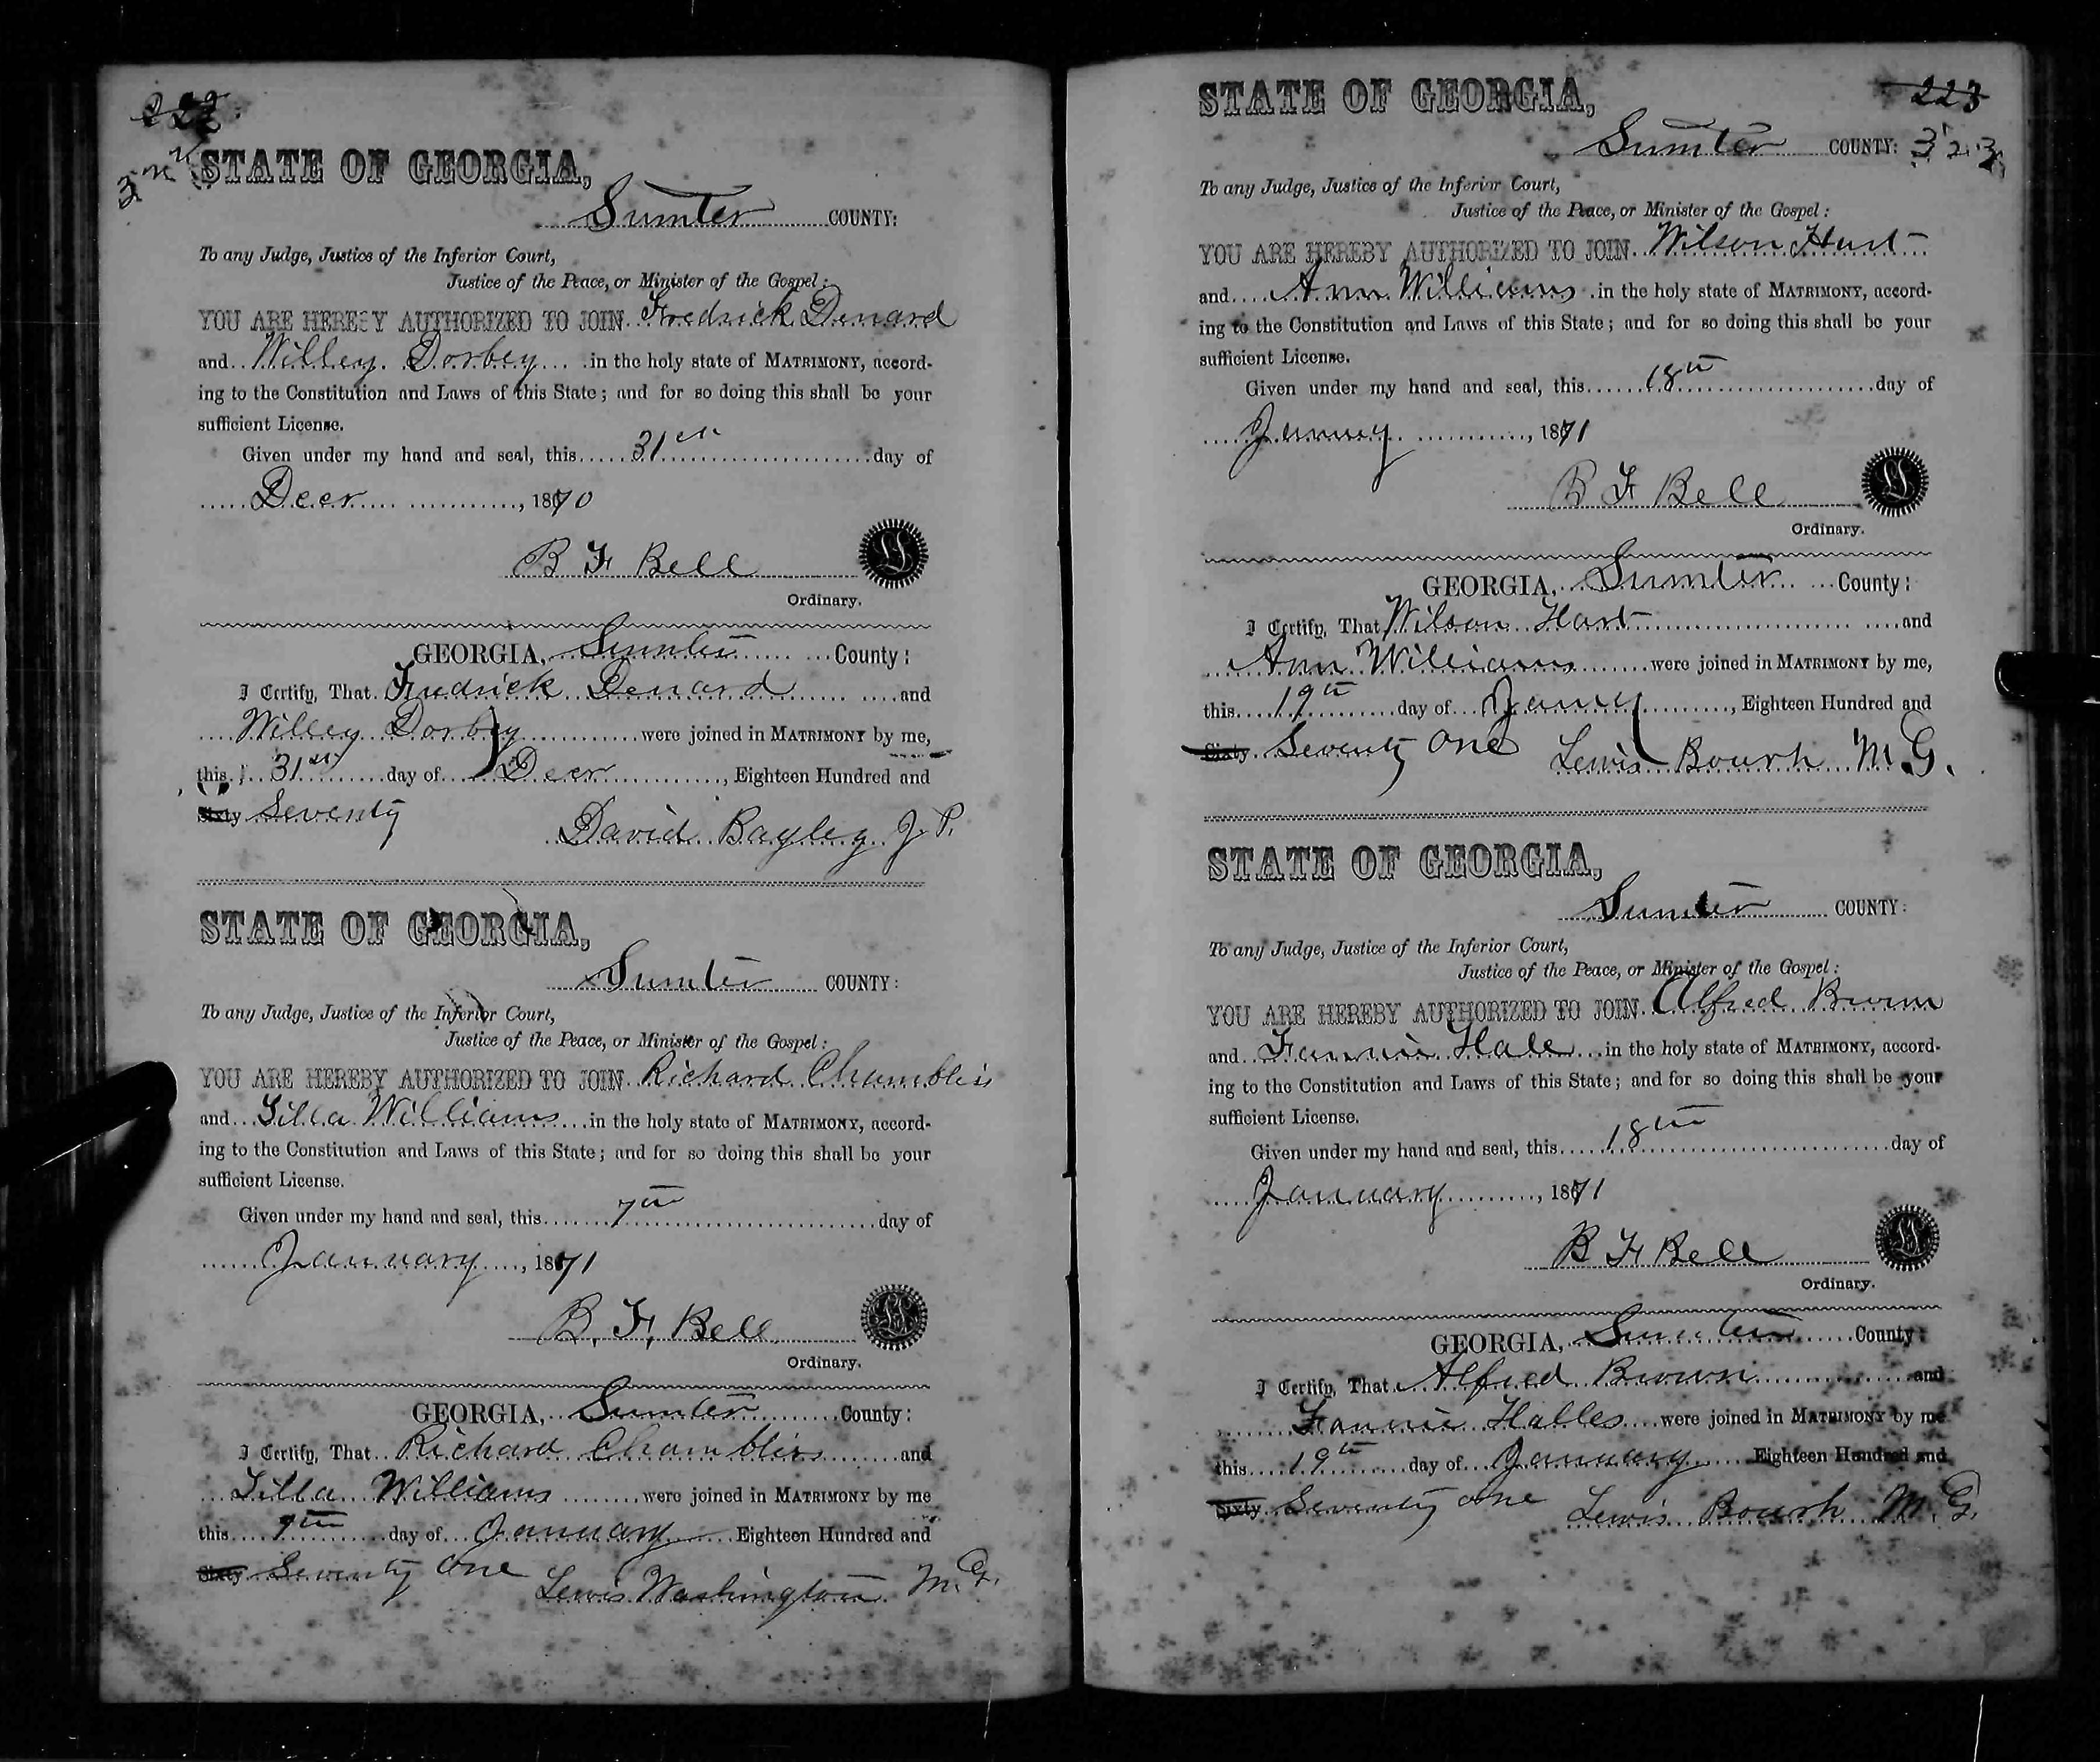 222
322
STATE OF GEORGIA,
Sumter COUNTY:
To any Judge, Justice of the Inferior Court,
Justice of the Peace, or Minister of the Gospel:
YOU ARE HEREBY AUTHORIZED TO JOIN Fredrick Denard
and Willey Dorbey in the holy state of MATRIMONY, accord-
ing to the Constitution and Laws of this State; and for so doing this shall be your
sufficient License.
Given under my hand and seal, this 31st day of
Decr, 1870
B F Bell
Ordinary.
GEORGIA, Sumter County:
I Certify, That Fredrick Denard and
Willey Dorbey were joined in MATRIMONY by me,
this 31st day of Decr, Eighteen Hundred and
Sixty Seventy
David Bagley J. P.
STATE OF GEORGIA,
Sumter COUNTY:
To any Judge, Justice of the Inferior Court,
Justice of the Peace, or Minister of the Gospel:
YOU ARE HEREBY AUTHORIZED TO JOIN Richard Chambliss
and Silla Williams in the holy state of MATRIMONY, accord-
ing to the Constitution and Laws of this State; and for so doing this shall be your
sufficient License.
Given under my hand and seal, this 7th day of
January, 1871
B. F. Bell
Ordinary.
GEORGIA, Sumter County:
I Certify, That Richard Chambliss and
Silla Williams were joined in MATRIMONY by me
this 7th day of January Eighteen Hundred and
Sixty Seventy One
Lewis Washington M. G.
223
STATE OF GEORGIA,
Sumter COUNTY: 323
To any Judge, Justice of the Inferior Court,
Justice of the Peace, or Minister of the Gospel:
YOU ARE HEREBY AUTHORIZED TO JOIN Wilson Hart
and Ann Williams in the holy state of MATRIMONY, accord-
ing to the Constitution and Laws of this State; and for so doing this shall be your
sufficient License.
Given under my hand and seal, this 18th day of
January, 1871
B F Bell
Ordinary.
GEORGIA, Sumter County:
I Certify, That Wilson Hart and
Ann Williams were joined in MATRIMONY by me,
this 19th day of Jany, Eighteen Hundred and
Sixty Seventy One Lewis M. G.
STATE OF GEORGIA,
Sumter COUNTY:
To any Judge, Justice of the Inferior Court,
Justice of the Peace, or Minister of the Gospel:
YOU ARE HEREBY AUTHORIZED TO JOIN Alfred Brown
and Fannie Hale in the holy state of MATRIMONY, accord-
ing to the Constitution and Laws of this State; and for so doing this shall be your
sufficient License.
Given under my hand and seal, this 18th day of
January, 1871
B F Bell
Ordinary.
GEORGIA, Sumter County:
I Certify, That Alfred Brown and
Fannie Halles were joined in MATRIMONY by me
this 19th day of January Eighteen Hundred and
Sixty Seventy one Lewis M. G.